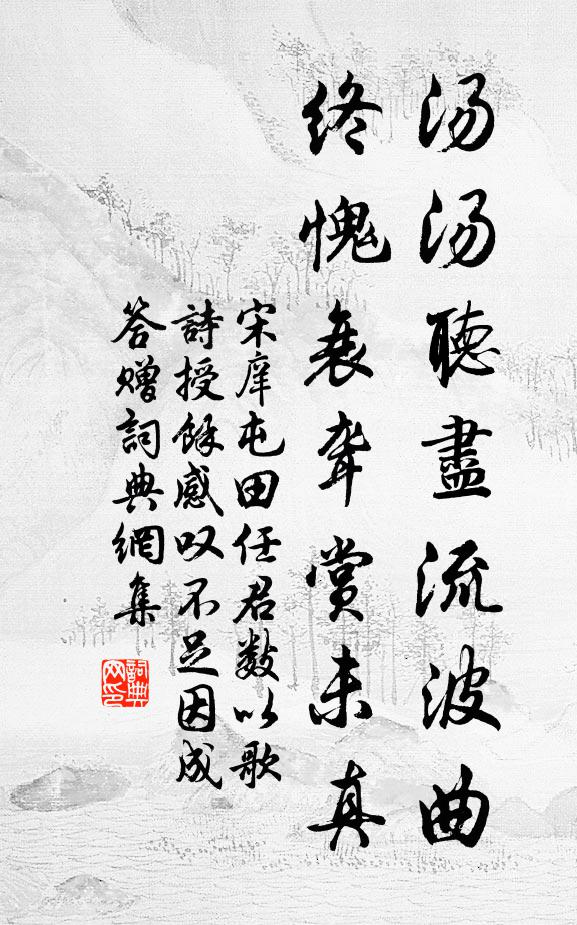 汤汤聽盡流波曲
终愧衰聋賞未真
宋庠屯田任君数以歌
詩授餘感叹不足因成
答赠詞典網集
詞典网印